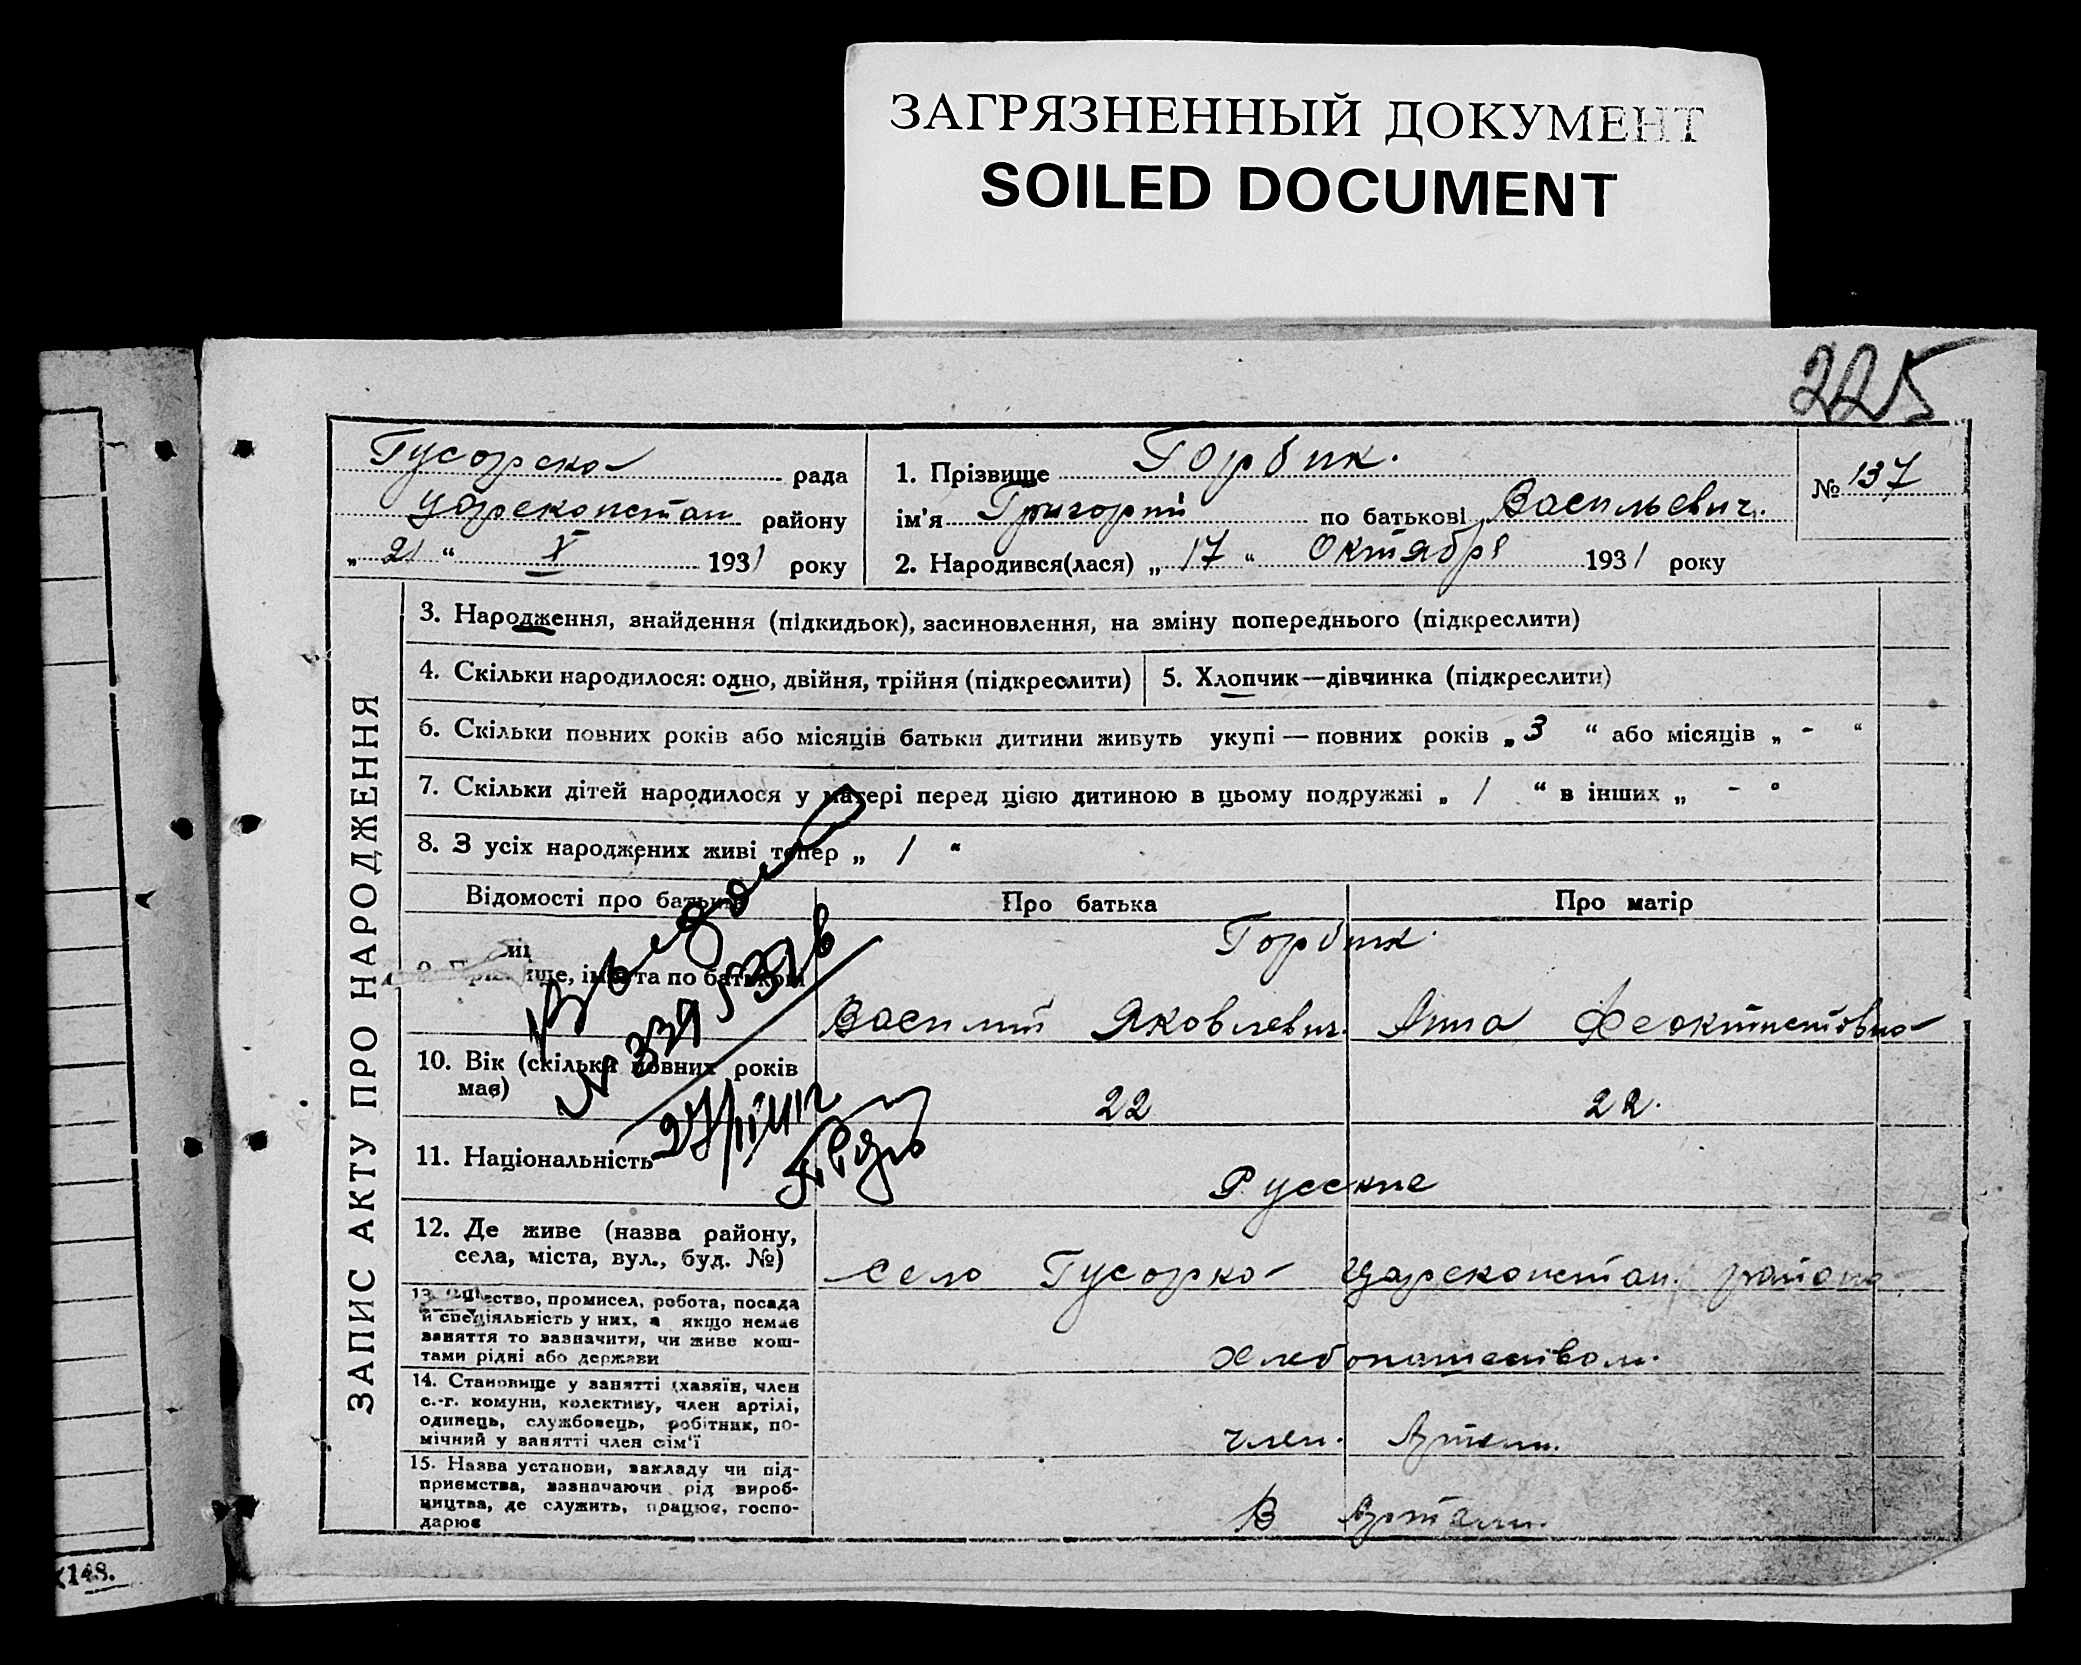 ЗАГРЯЗНЕННЫЙ ДОКУМЕНТ
SOILED DOCUMENT
225
Гусарска рада
Цареконстан району
„ 21 “ X 1931 року
1. Прізвище Горбик.
ім'я Григорій по батькові Васильевич.
2. Народився(лася) „ 17 “ Октября 1931 року
№ 137
ЗАПИС АКТУ ПРО НАРОДЖЕННЯ
3. Народження, знайдення (підкидьок), засиновлення, на зміну попереднього (підкреслити)
4. Скільки народилося: одно, двійня, трійня (підкреслити)
5. Хлопчик—дівчинка (підкреслити)
6. Скільки повних років або місяців батьки дитини живуть укупі — повних років „ 3 “ або місяців „ - “
7. Скільки дітей народилося у матері перед цією дитиною в цьому подружжі „ 1 “ в інших „ - “
8. З усіх народжених живі тепер „ 1 “
Відомості про батьків
Про батька
Про матір
Горбик.
9. Прізвище, ім'я та по батькові
Василий Яковлевич.
Анна Феоктистовна
10. Вік (скільки повних років
має)
22
22.
11. Національність
Русские
12. Де живе (назва району,
села, міста, вул., буд. №)
село Гусарка Цареконстан. района
промисел, робота, посада
й спеціяльність у них, а якщо немає
заняття то зазначити, чи живе кош-
тами рідні або держави
Хлебопашеством.
14. Становище у занятті (хазяїн, член
с.-г. комуни, колективу, член артілі,
одинець, службовець, робітник, по-
мічний у занятті член сім'ї
член. Артели.
15. Назва установи, закладу чи під-
приємства, зазначаючи рід вироб-
ництва, де служить, працює, госпо-
дарює
В Артели.
148.